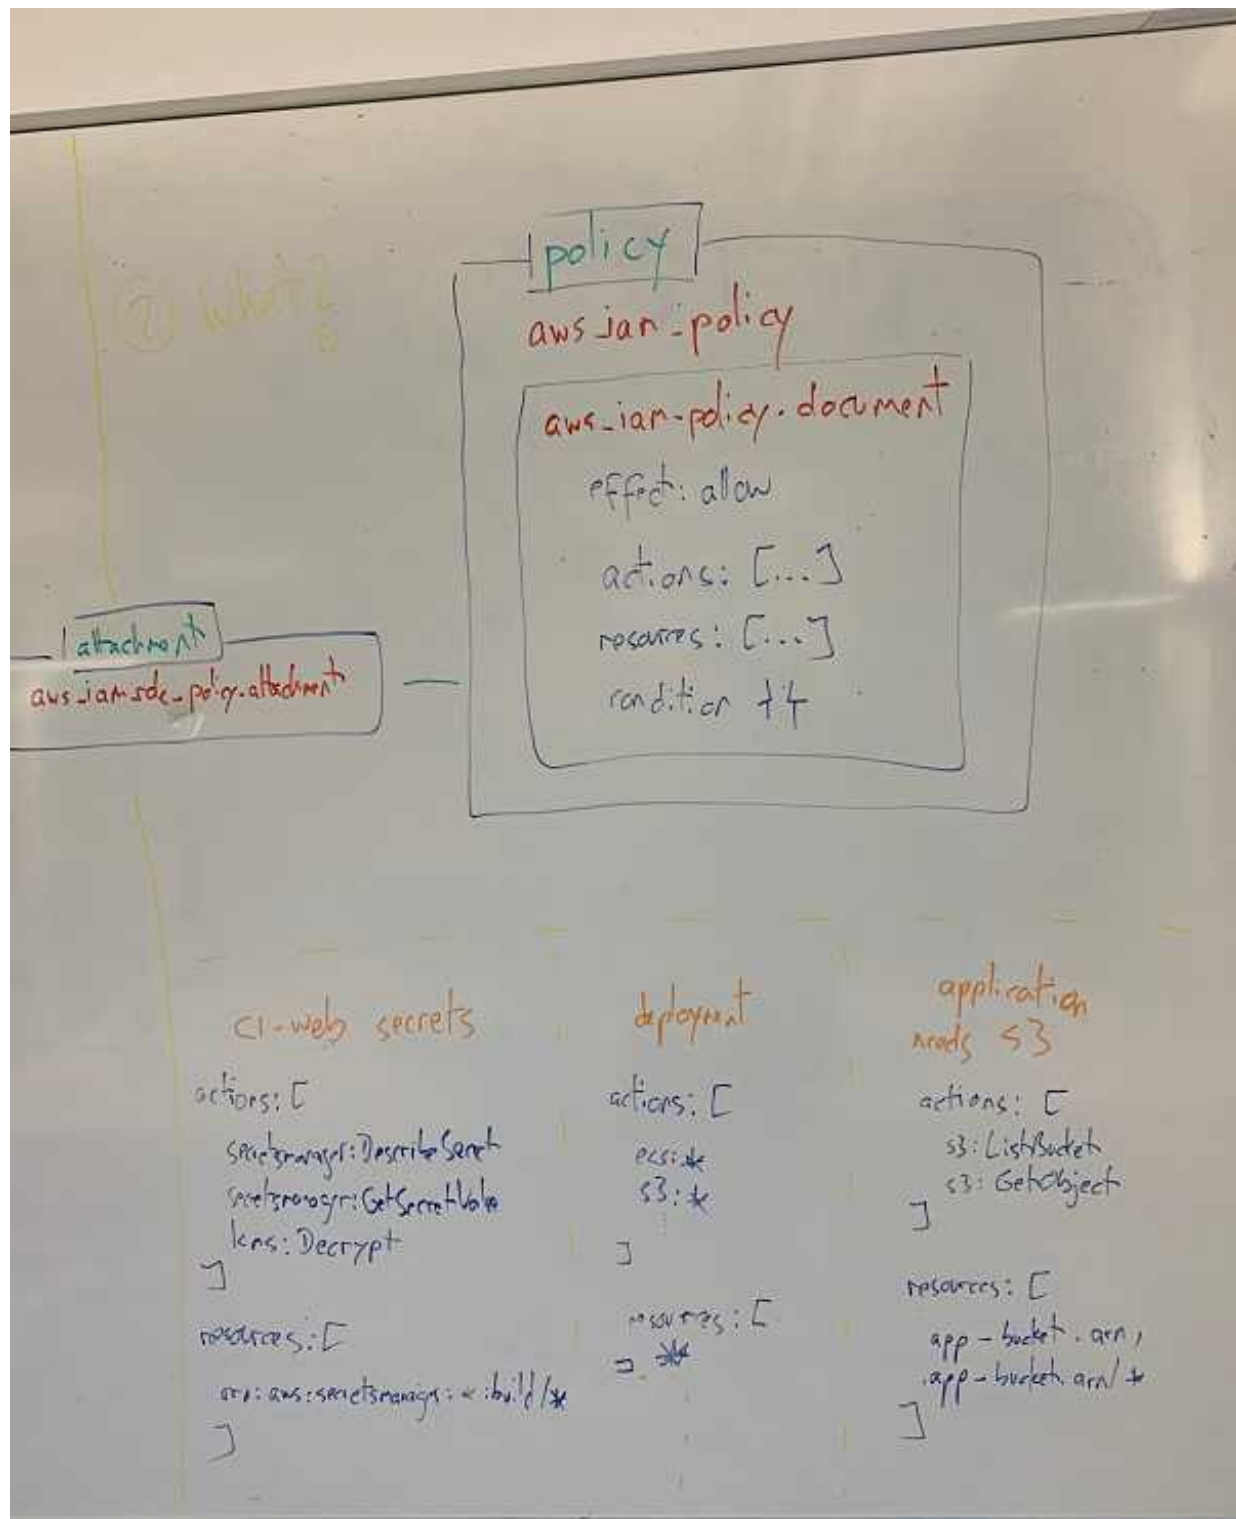 ② What?
policy
aws_iam_policy
aws_iam_policy_document
effect: allow
actions: [...]
resources: [...]
condition
attachment
aws_iam_role_policy_attachment
CI-web secrets
actions: [
secretsmanager:DescribeSecret
secretsmanager:GetSecretValue
kms:Decrypt
]
resources: [
arn:aws:secretsmanager: :build/*
]
deployment
actions: [
ecs:*
s3:*
⋮
]
resources: [
] *
application
needs S3
actions: [
s3:ListBucket
s3:GetObject
]
resources: [
app-bucket.arn,
app-bucket.arn/*
]